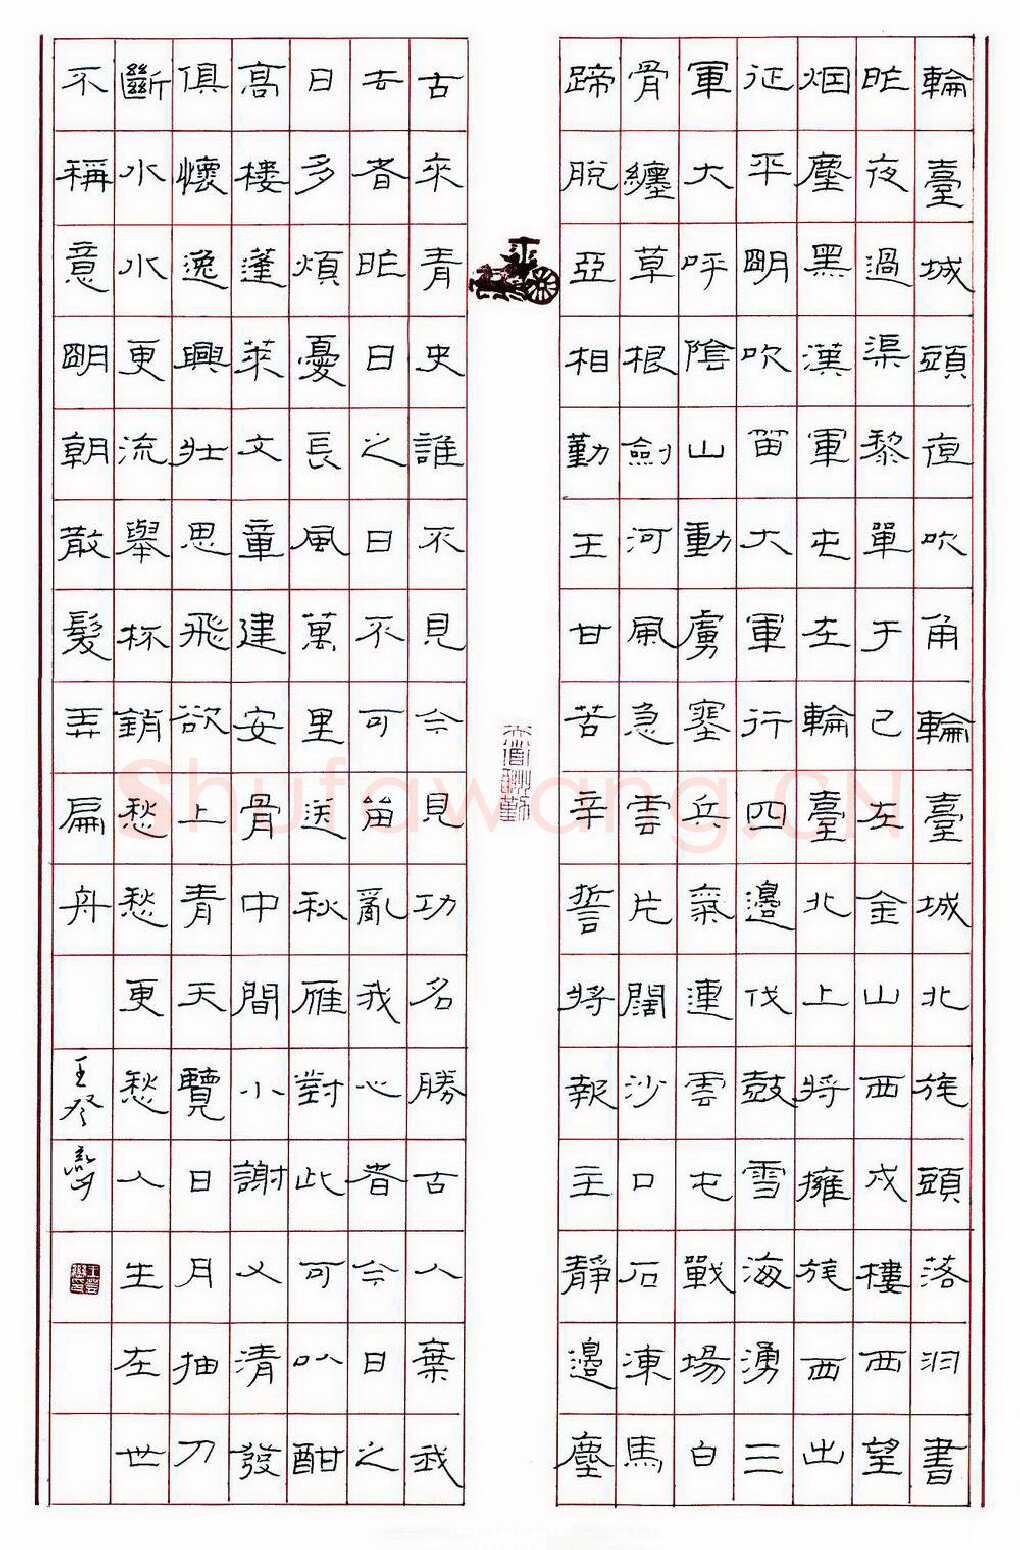 輪臺城頭夜吹角輪臺城北旄頭落羽書
昨夜過渠黎單于已在金山西戍樓西望
烟塵黑漢軍屯在輪臺北上將擁旄西出
征平明吹笛大軍行四邊伐鼓雪海湧三
軍大呼陰山動虜塞兵氣連雲屯戰場白
骨纏草根劍河風急雲片闊沙口石凍馬
蹄脫亞相勤王甘苦辛誓將報主靜邊塵
天道酬勤
古來青史誰不見今見功名勝古人棄我
去者昨日之日不可留亂我心者今日之
日多煩憂長風萬里送秋雁對此可以酣
高樓蓬萊文章建安骨中間小謝又清發
俱懷逸興壯思飛欲上青天覽日月抽刀
斷水水更流舉杯銷愁愁更愁人生在世
不稱意明朝散髮弄扁舟
Shufawang.CN